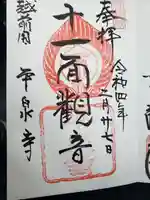 奉拝
令和四年
二月廿七日
十一面觀音
越前國
平泉寺